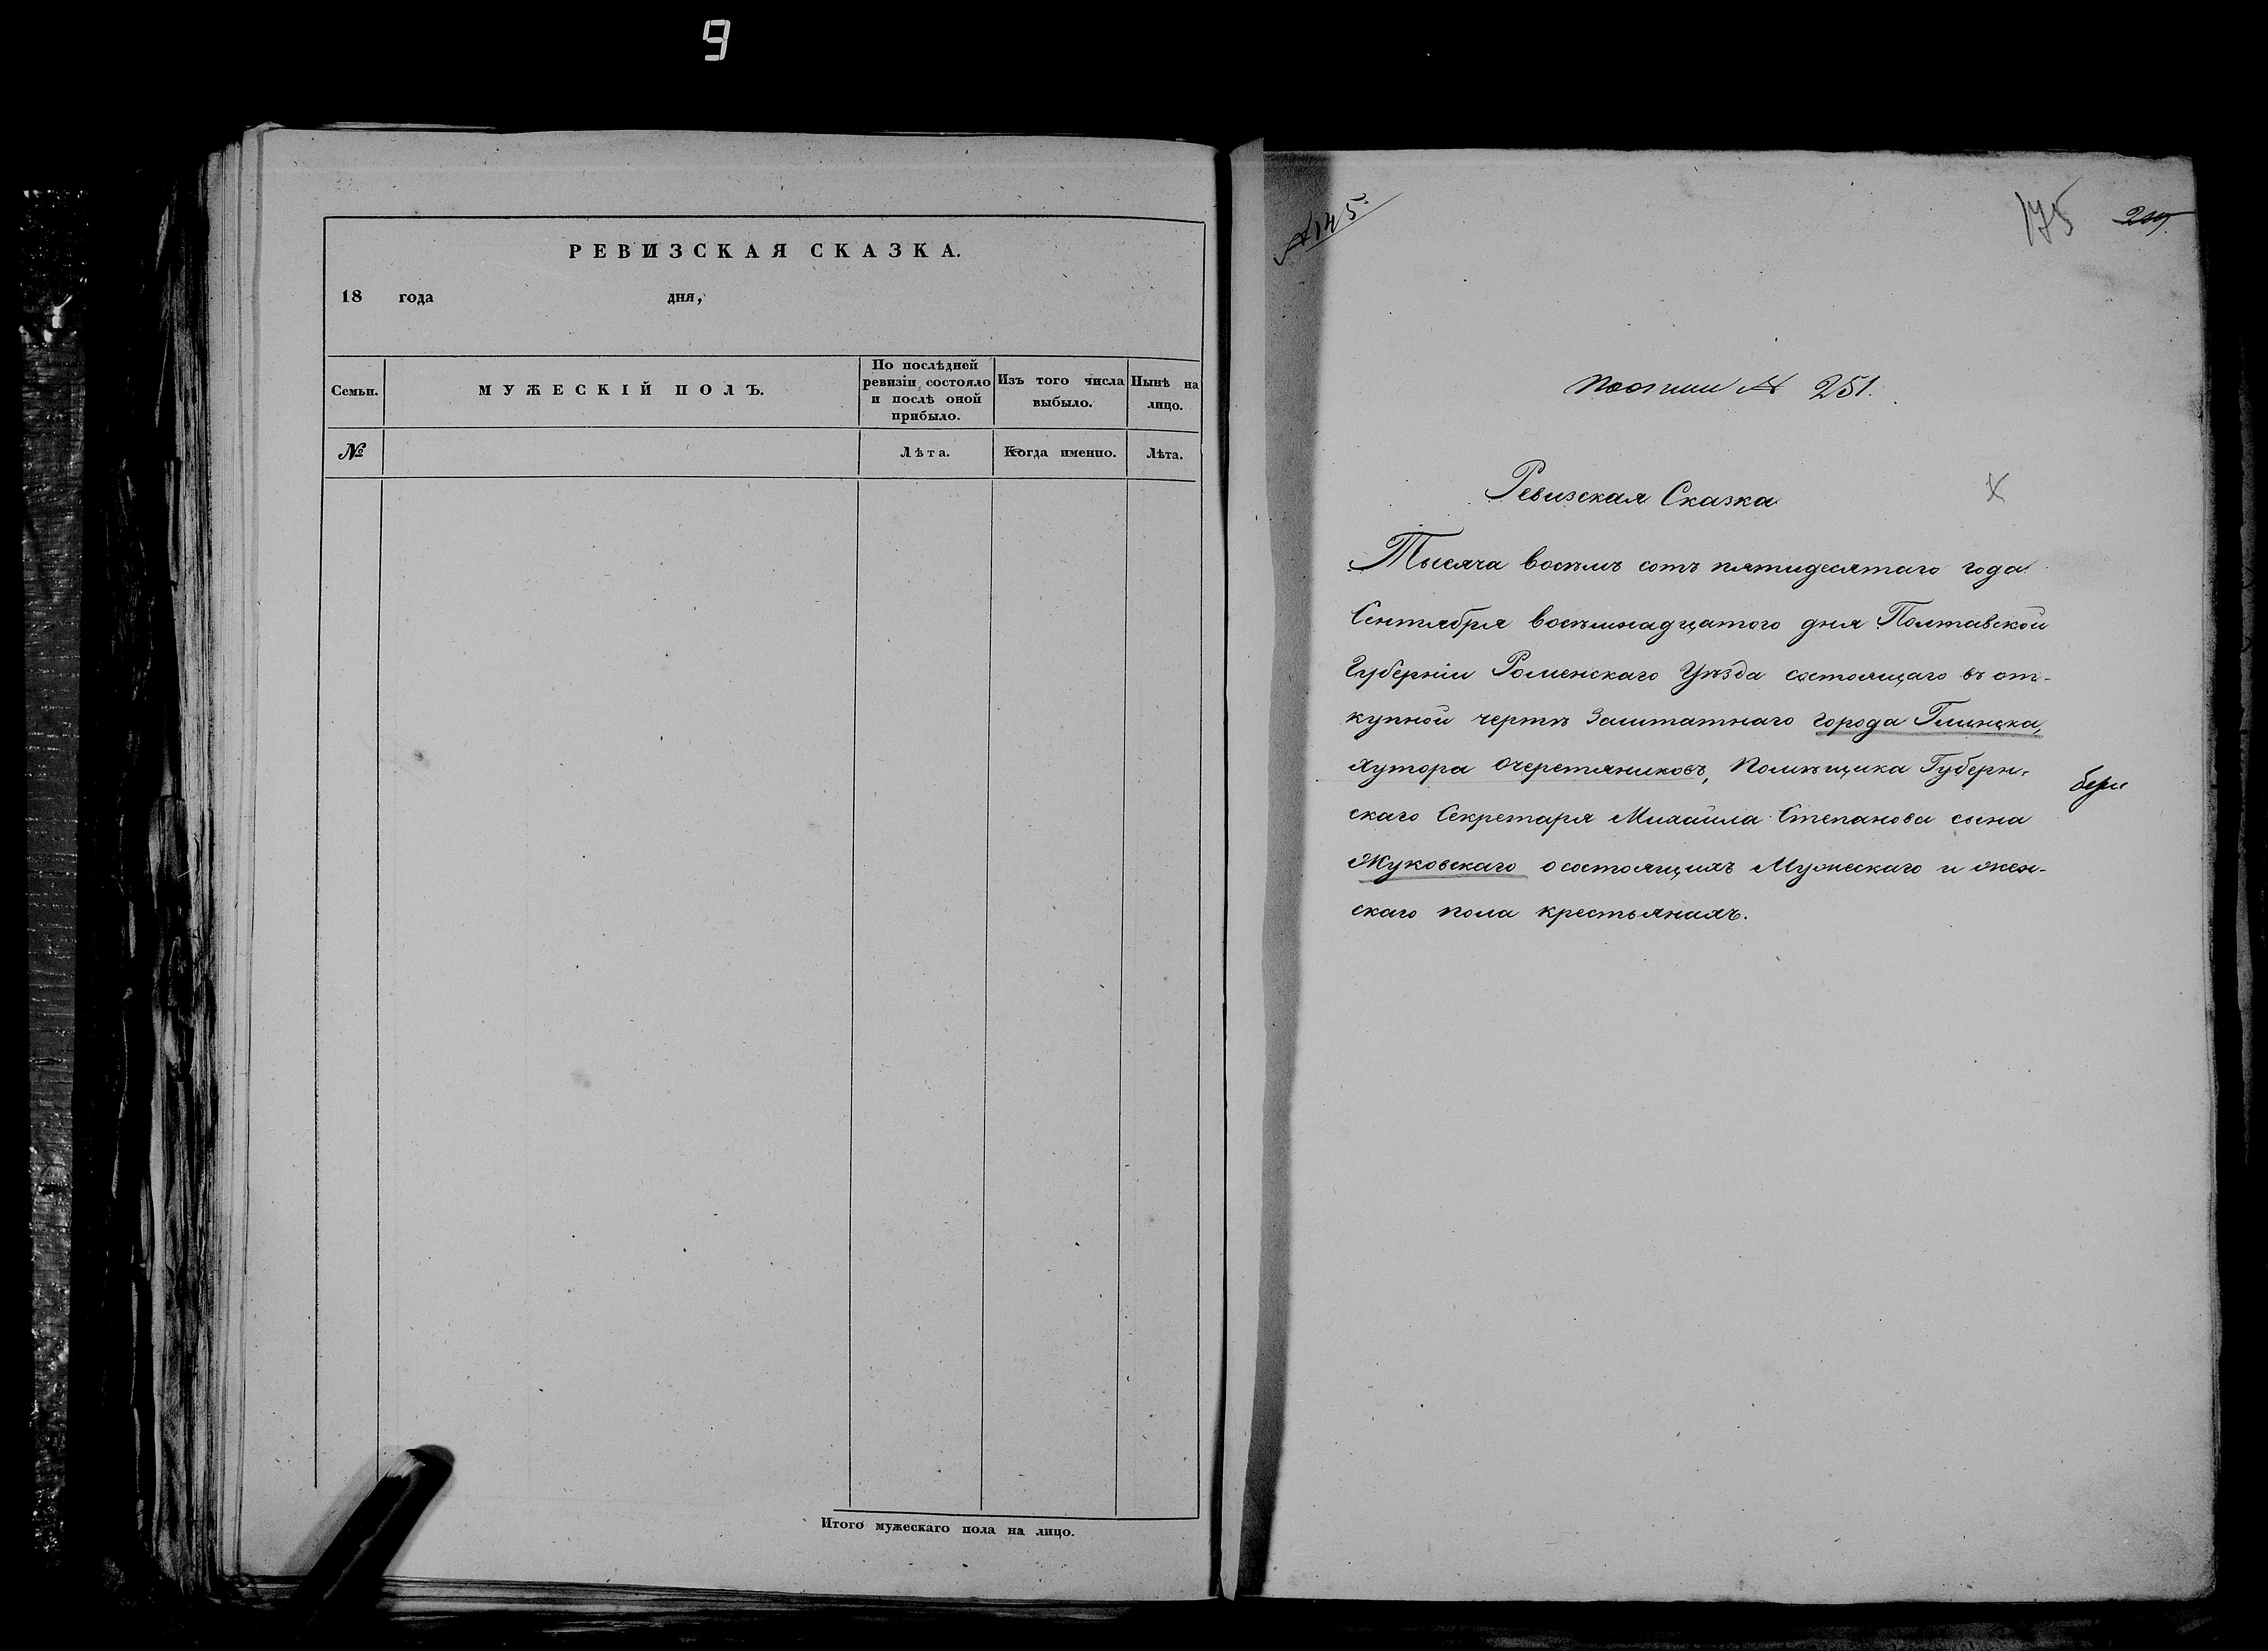 9
РЕВИЗСКАЯ СКАЗКА.
18 года дня,
Семьи.
МУЖЕСКІЙ ПОЛЪ.
По послѣдней
ревизіи состояло
и послѣ оной
прибыло.
Изъ того числа
выбыло.
Нынѣ на
лицо.
№
Лѣта.
Когда именно.
Лѣта.
Итого мужескаго пола на лицо.
175
№ 251.
Ревизская Сказка
Тысяча восемь сотъ пятидесятаго года
Сентября восемнадцатого дня Полтавской
Губерніи Роменскаго Уѣзда состоящаго въ от-
купной чертѣ Заштатнаго города Глинска,
хутора Очеретяниковъ, Помѣщика Губерн-
скаго Секретаря Михаила Степанова сына
Жуковскаго о состоящихъ Мужескаго и жен-
скаго пола крестьянахъ.